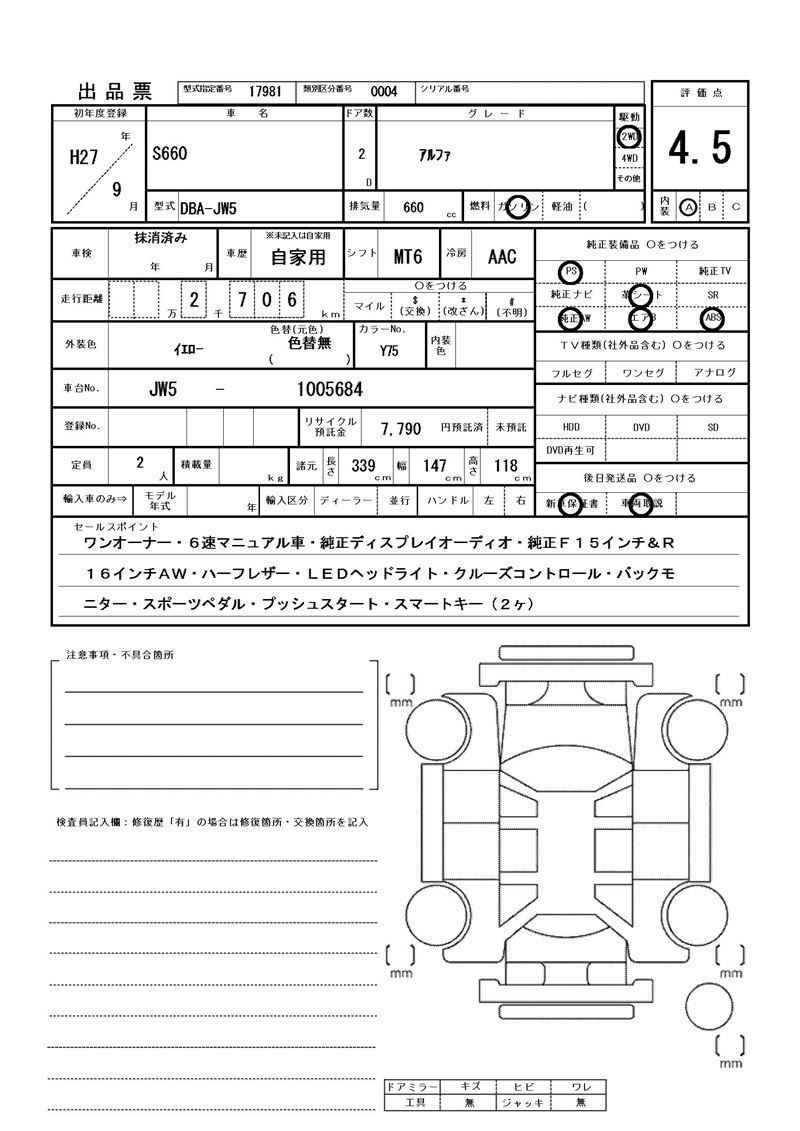 出品票 型式指定番号 17981 類別区分番号 0004 シリアル番号
評価点
4.5
内装 A B C
初年度登録 車名 ドア数 グレード 駆動
H27 年 9 月 S660 2 D アルファ 2WD
4WD
その他
型式 DBA-JW5 排気量 660 cc 燃料 ガソリン 軽油 ( )
車検 抹消済み 年 月 車歴 ※未記入は自家用 自家用 シフト MT6 冷房 AAC
走行距離 2 万 706 千 km Oをつける
マイル $(交換) *(改ざん) #(不明)
外装色 イエロー 色替(元色) 色替無 ( ) カラーNo. Y75 内装色
車台No. JW5 - 1005684
登録No. リサイクル預託金 7,790 円預託済 未預託
定員 2 人 積載量 kg 諸元 長さ 339 cm 幅 147 cm 高さ 118 cm
輸入車のみ⇒ モデル年式 年 輸入区分 ディーラー 並行 ハンドル 左 右
純正装備品 Oをつける
PS PW 純正TV
純正ナビ 革シート SR
純正AW エアB ABS
TV種類(社外品含む) Oをつける
フルセグ ワンセグ アナログ
ナビ種類(社外品含む) Oをつける
HDD DVD SD
DVD再生可
後日発送品 Oをつける
新車保証書 車両取説
セールスポイント
ワンオーナー・6速マニュアル車・純正ディスプレイオーディオ・純正F15インチ&R
16インチAW・ハーフレザー・LEDヘッドライト・クルーズコントロール・バックモ
ニター・スポーツペダル・プッシュスタート・スマートキー(2ヶ)
注意事項・不具合箇所
検査員記入欄：修復歴「有」の場合は修復箇所・交換箇所を記入
[ ] mm [ ] mm
[ ] mm [ ] mm
[ ] mm
ドアミラー キズ ヒビ ワレ
工具 無 ジャッキ 無